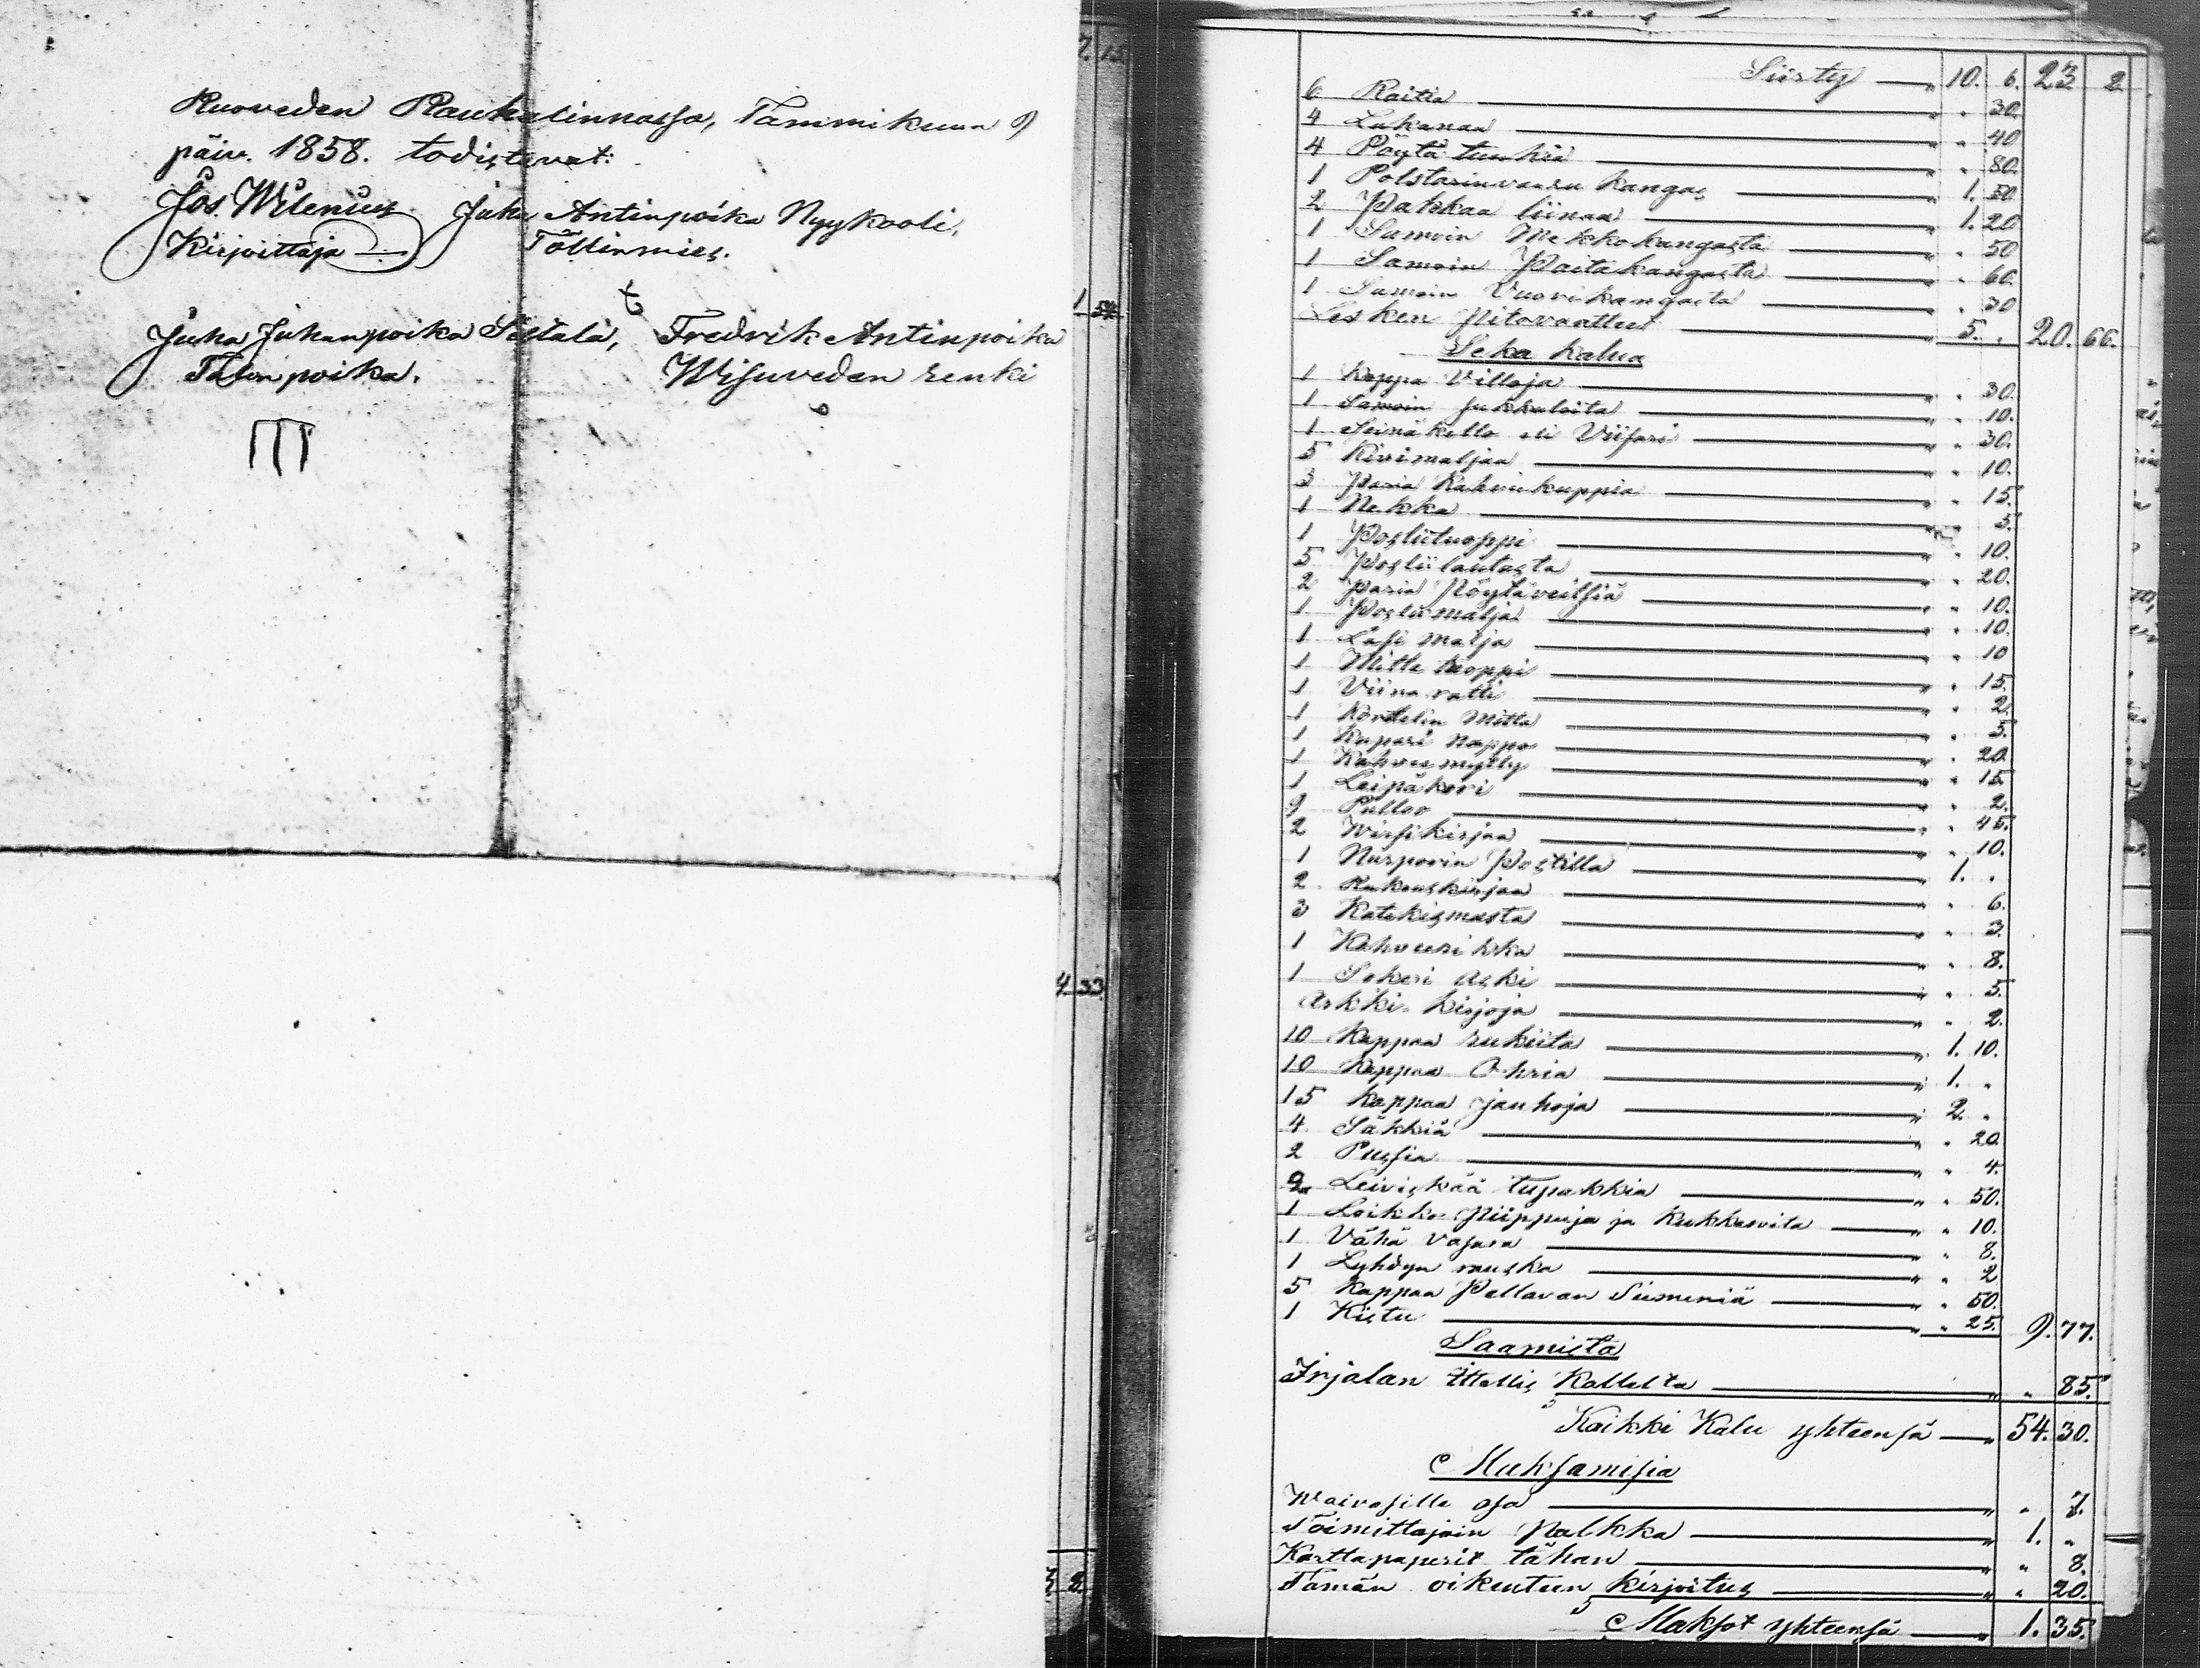 Ruoveden Rauhalinnassa, Tammikuun 9
päiv. 1858. todistavat:
Jos. Wilenius Juha Antinpoika Nyykooli,
Kirjoittaja Töllinmies.
Juha Juhanpoika Fredrik Antinpoika
Talonpoika. Wisuveden renki
7. 15
1 54
4 33
8.
Siirty — „ 10. 6. 23 2
6 Raitia — „ „ 30.
4 Lakanaa — „ „ 40
4 Pöytä tuukia — „ „ 80.
1 Polstarinvaaru kangas — „ 1. 50
2 Pakkaa liinaa — „ 1. 20
1 Samoin Mekkokangasta — „ „ 50
1 Samoin Paitakangasta — „ „ 60.
1 Samoin Vuorikangasta — „ „ 30
Lesken Pitovaatteet — „ 5. „ 20. 66.
Seka kalua
1 Koppa Villoja — „ „ 30.
1 Samoin — „ „ 10.
1 Seinäkello eli Viisari — „ „ 30.
5 Kivimaljaa — „ „ 10.
3 Paria Kahvikuppia — „ „ 15.
1 Nekka — „ „ 5.
1 Posliituoppi — „ „ 10.
5 Poslii lautasta — „ „ 20.
2 Paria Pöytäveitsiä — „ „ 10.
1 Posliimalja — „ „ 10.
1 Lasi malja — „ „ 10
1 Mitta tuoppi — „ „ 15.
1 Viina ratti — „ „ 2.
1 Korttelin Mitta — „ „ 5.
1 Kupari nappo — „ „ 20.
1 Kahvee mylly — „ „ 15.
1 Leipäkori — „ „ 2.
9 Pulloo — „ „ 45.
2 Wirsikirjaa — „ „ 10.
1 Nurporin Postilla — „ 1. „
2 Rukouskirjaa — „ „ 6.
3 Katekismusta — „ „ 3.
1 — „ „ 8.
1 Sokeri aski — „ „ 5.
Arkki-kirjoja — „ „ 2.
10 Kappaa rukiita — „ 1. 10.
10 Kappaa Ohria — „ 1. „
15 Kappaa jauhoja — „ 2. „
4 Säkkiä — „ „ 20.
2 Pussia — „ „ 4.
2 Leiviskää tupakkia — „ „ 50.
1 Loikko Piippuja ja kukkaroita — „ „ 10.
1 Vähä vasara — „ „ 8.
1 Lyhdyn rauska — „ „ 2
5 Kappaa Pellavan Siemeniä — „ „ 50.
1 Kistu — „ „ 25. 9. 77.
Saamista
Irjalan Kallelta — „ „ 85.
Kaikki Kalu yhteensä — „ 54. 30.
Maksamisia
Waivasille osa — „ „ 7.
Toimittajain Palkka — „ 1. „
Karttapaperit tähän — „ „ 8.
Tämän oikeuteen kirjoitus — „ „ 20.
Maksot yhteensä — „ 1. 35.